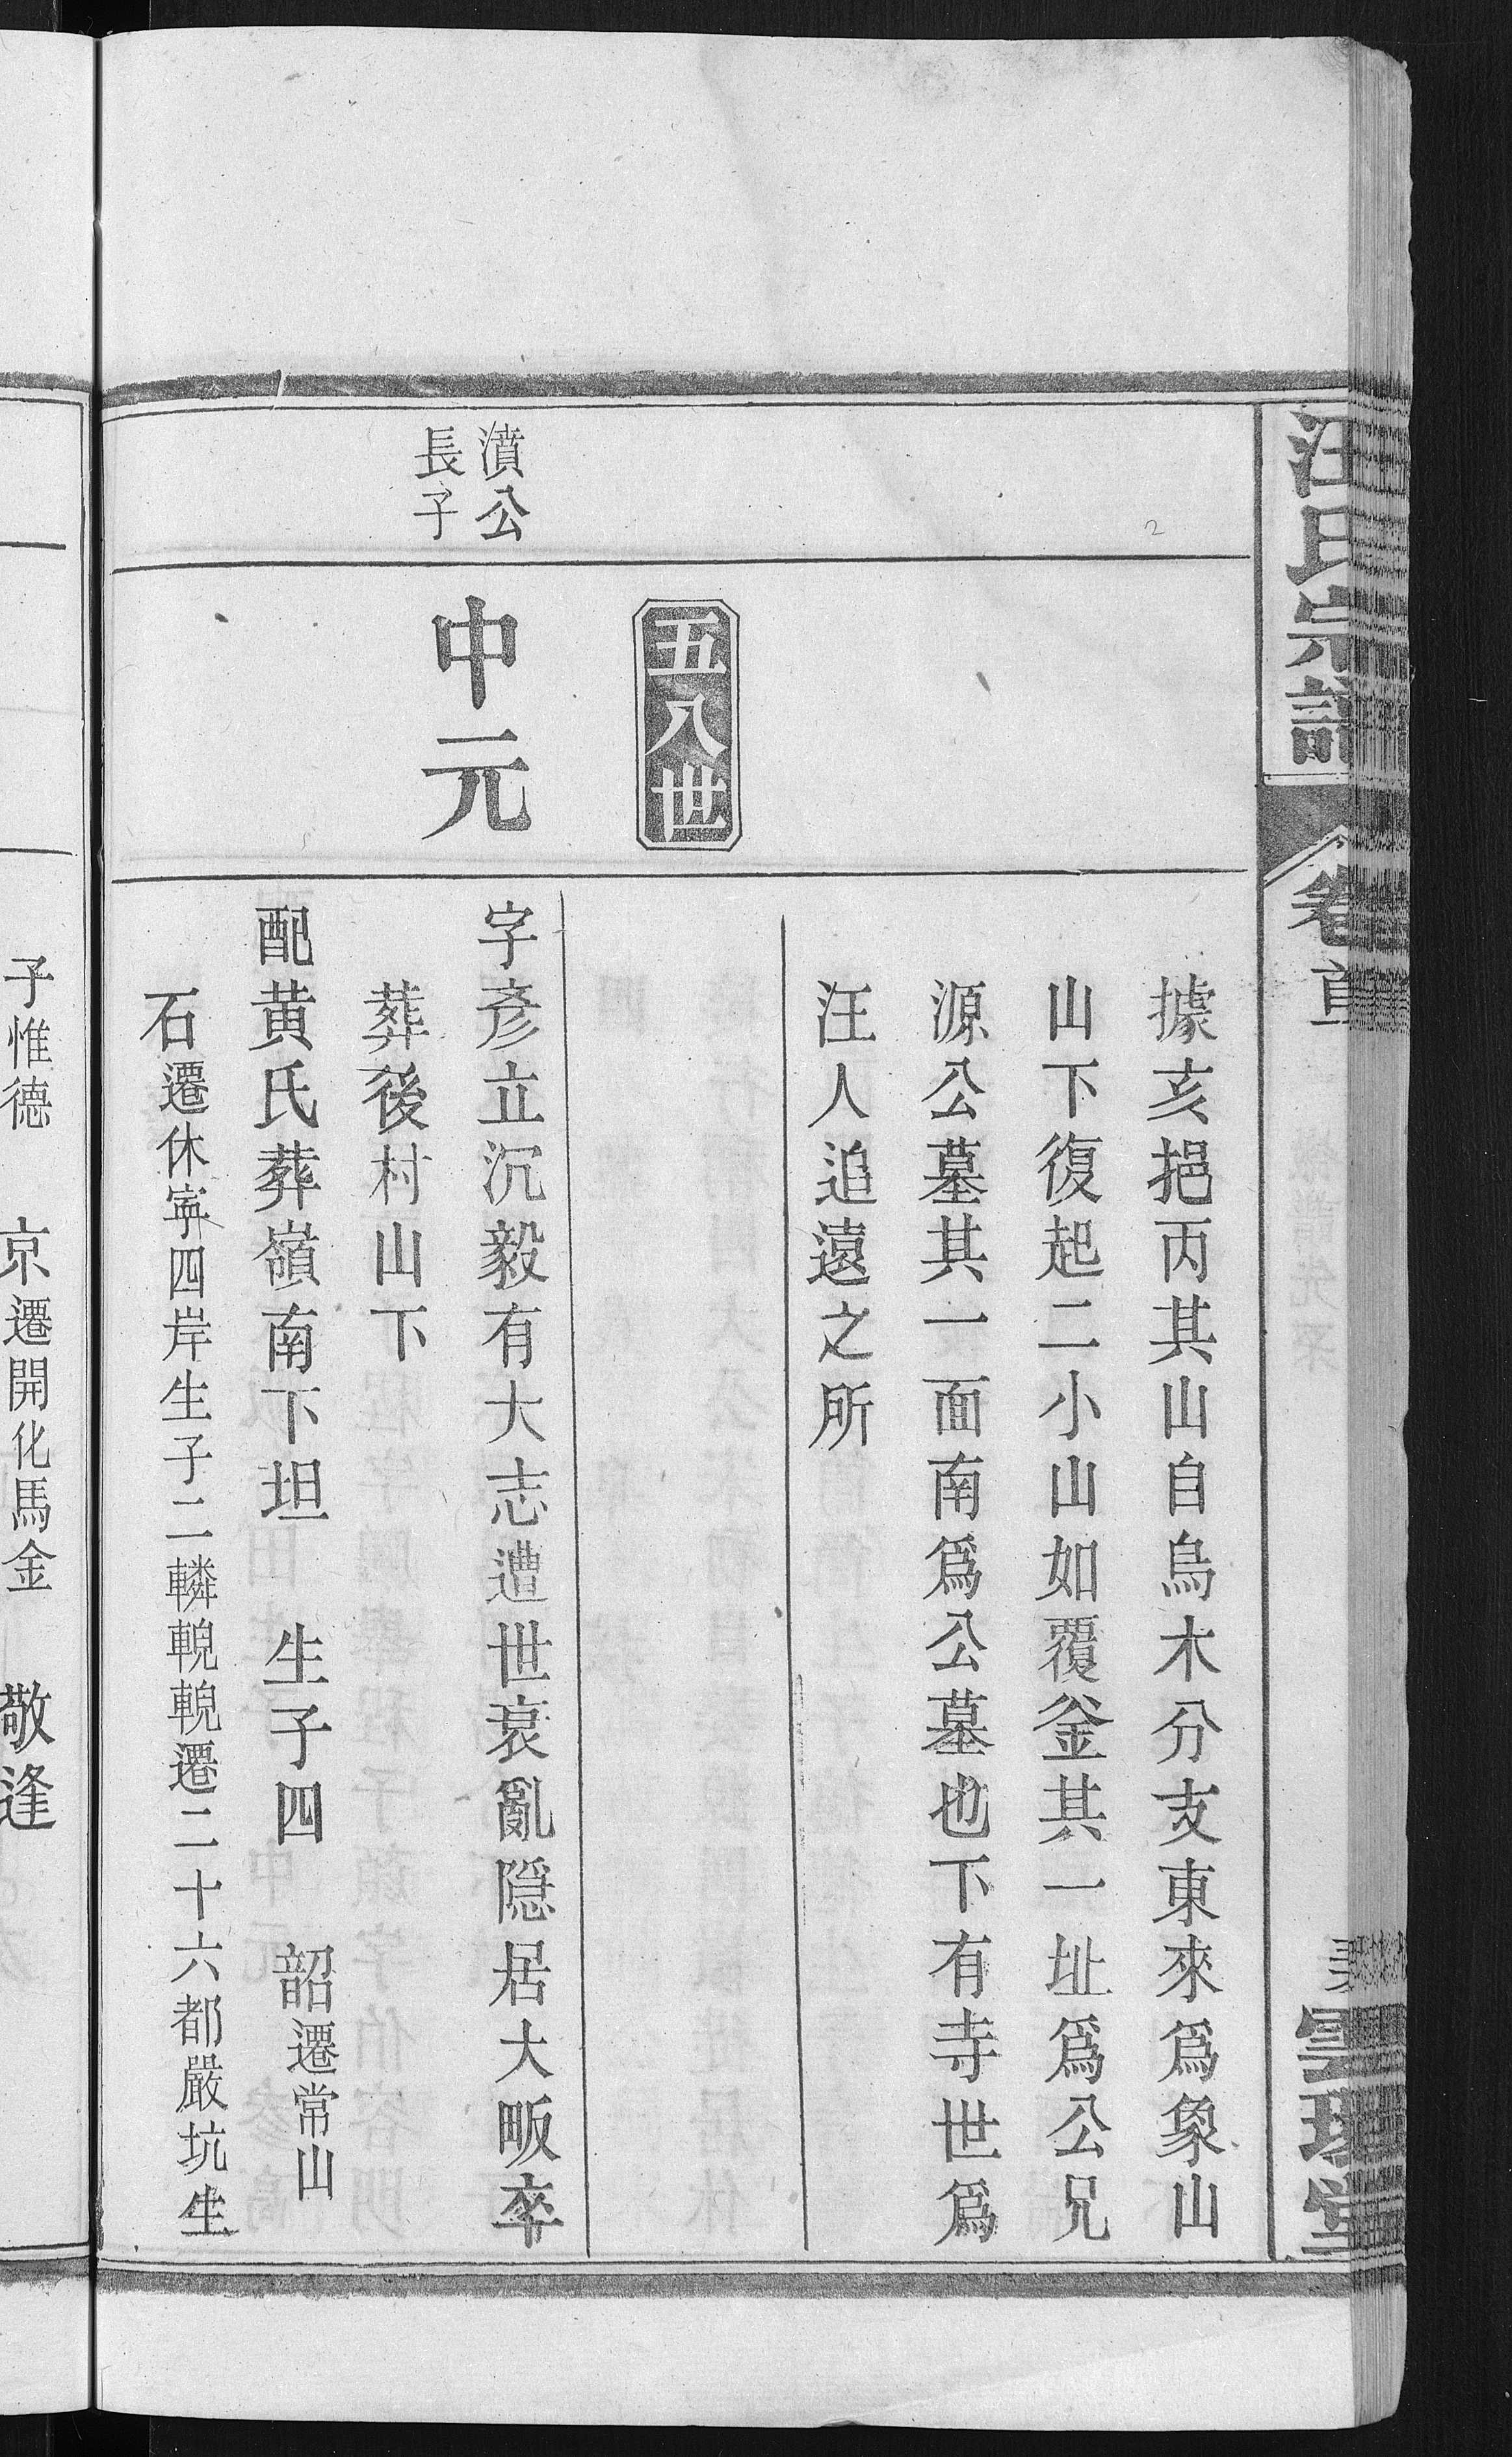 汪氏宗譜
卷首
雲環堂
據亥挹丙其山自烏木分支東來爲象山
山下復起二小山如覆釜其一址爲公兄
源公墓其一面南爲公墓也下有寺世爲
汪人追遠之所
五八世
濆公
長子
中元
字彦立沉毅有大志遭世衰亂隱居大畈卒
葬後村山下
配黄氏葬嶺南下坦 生子四 韶遷常山
石遷休寧四岸生子二轔輗輗遷二十六都嚴坑生
子惟德 京遷開化馬金 敬逢